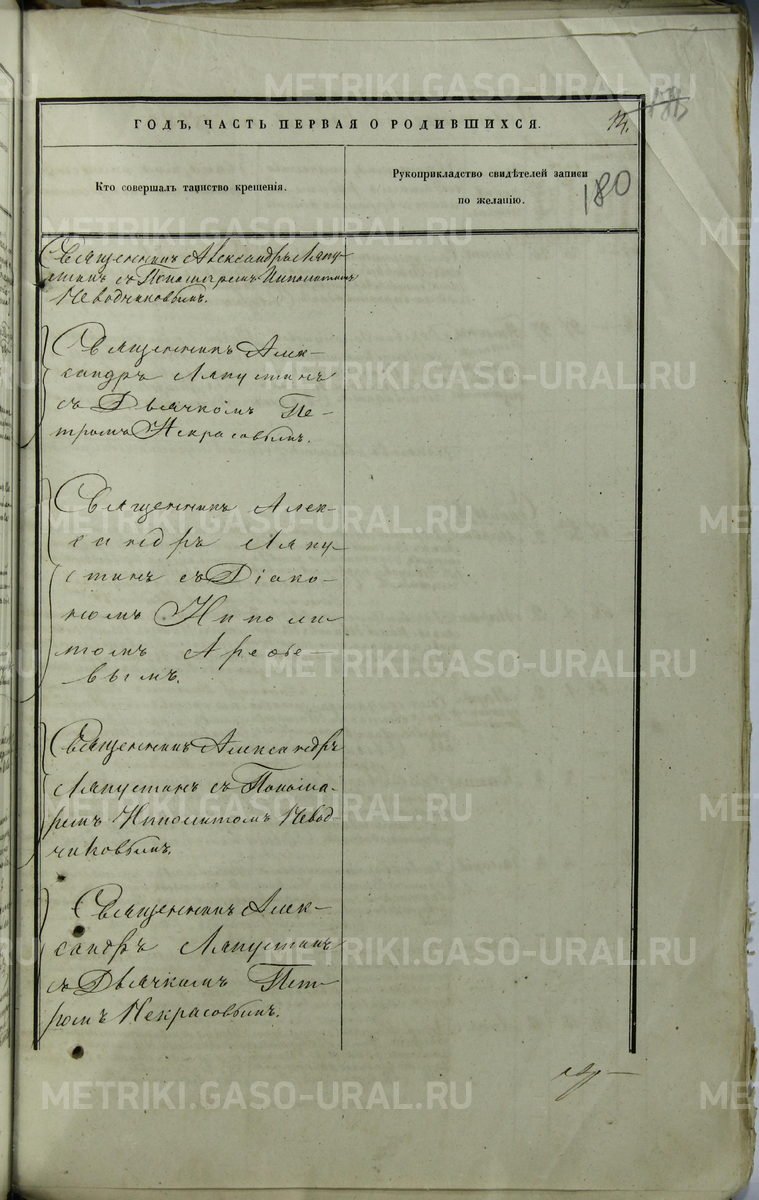 METRIKI.GASO-URAL.RU
ГОДЪ, ЧАСТЬ ПЕРВАЯ О РОДИВШИХСЯ.
14.
Кто совершалъ таинство крещенія.
Рукоприкладство свидѣтелей записи
по желанію.
180
Священникъ Александръ Ляпу
стинъ съ Пономаремъ Ипполитомъ
Неводчиковымъ.
Священникъ Алек-
сандръ Ляпустинъ
съ Дьячкомъ Пе-
тромъ Некрасовымъ.
Священникъ Алек-
сандръ Ляпу-
стинъ съ Діако-
номъ Иполи-
томъ
вымъ.
Священникъ Александръ
Ляпустинъ съ Понома-
ремъ ИпполитомъНевод-
чиковымъ.
Священникъ Алек-
сандръ Ляпустинъ
съ Дьячкомъ Пет-
ромъ Некрасовымъ.